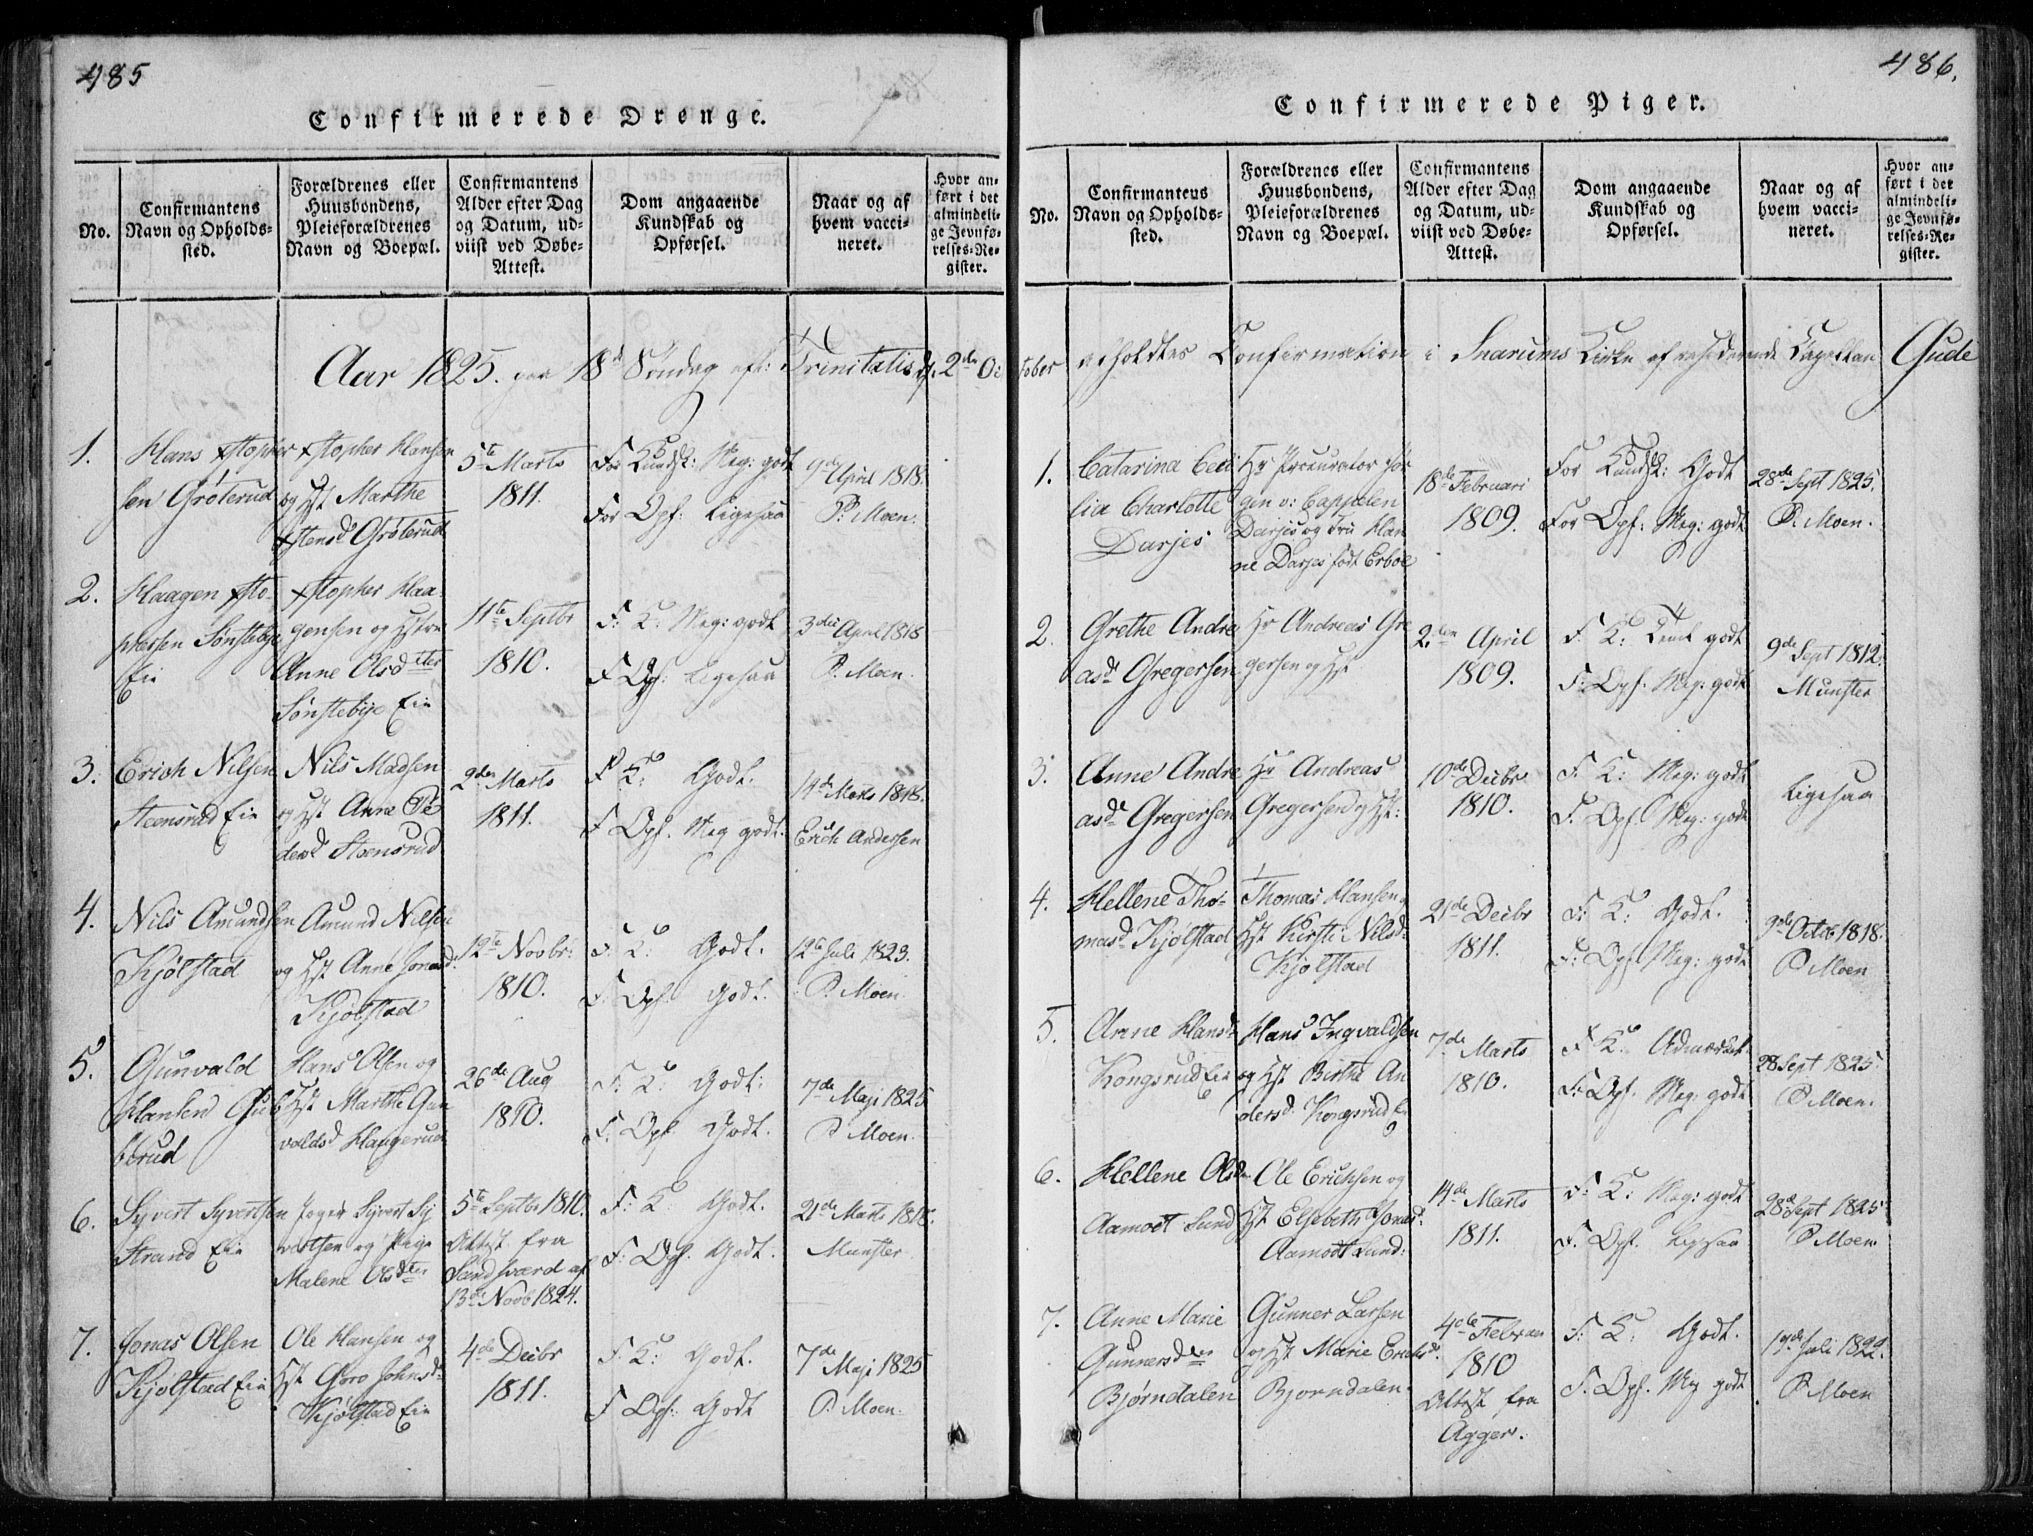 485
Confirmerede Drenge.
No.
Confirmantens
Navn og Opholds-
sted.
Forældrenes eller
Huusbondens,
Pleieforældrenes
Navn og Boepæl.
Confirmantens
Alder efter Dag
og Datum, ud-
viist ved Døbe-
Attest.
Dom angaaende
Kundskab og
Opførsel.
Naar og af
hvem vacci-
neret.
Hvor an-
ført i det
almindeli-
ge Jevnfø-
relses-Re-
gister.
Aar 1825. paa 18d Søndag eft: Trinitatis d. 2den Oc
1.
Hans xstopher
sen Grøterud
xstopher Hansen
og Hst Marthe
xstensd Grøterud
5te Marts
1811.
For Kundsk: Meg: godt
For Opf: Ligesaa
9de April 1818.
P. Moen.
2.
Haagen xsto-
phersen Sønstebye
Eie
xstopher Haa
gensen og Hstre
Anne Olsdtter
Sønstebye Eie
11te Septbr
1810.
F: K: Meg: godt
F Opf: Ligesaa
3die April 1818
P. Moen.
3.
Erich Nilsen
Steensrud Eie
Nils Madsen
og Hst Anne Pe
dersd Steensrud
9den Marts
1811.
F K: Godt.
F Opf. Meg godt.
14de Marts 1818.
Erich Andersen
4.
Nils Amundsen
Kjølstad
Amund Nilsen
og Hst Anne Jonasd:
Kjølstad
12te Novbr:
1810.
F: K: Godt.
F: Opf. Godt.
12te Juli 1823.
P. Moen.
5.
Gunvald
Hansen Gub
berud
Hans Olsen og
Hst Marthe Gun
valdsd Haugerud
26de Aug
1810.
F: K: Godt:
F: Opf. Godt.
7de Maji 1825
P. Moen.
6.
Syvert Syvertsen
Strand Eie
Syvert Sy
vertsen og Pige
Malene Olsdter
5te Septbr 1810.
Attest fra
Sandsværd af
13de Novb 1824.
F: K: Godt.
F: Opf. Godt.
21de Marts 1818.
Munster
7.
Jonas Olsen
Kjølstad Eie
Ole Hansen og
Hst Goro Johnsd-
Kjølstad Eie
4de Decbr
1811.
F: K: Godt.
F Opf: Godt
7de Maji 1825
P. Moen.
486.
Confirmerede Piger.
No.
Confirmantens
Navn og Opholds-
sted.
Forældrenes eller
Huusbondens,
Pleieforældrenes
Navn og Boepæl.
Confirmantens
Alder efter Dag
og Datum, ud-
viist ved Døbe-
Attest.
Dom angaaende
Kundskab og
Opførsel.
Naar og af
hvem vacci-
neret.
Hvor an-
ført i det
almindeli-
ge Jevnfø-
relses-Re-
gister.
tober afholdtes Confirmation i Snarums Kirke af residerende Capellan Gude
1.
Catarina Ceci
lia Charlotte
Darjes
Hr Procurator Jør
gen v: Cappelen
Darjes og Fru Han
ne Darjes født Erboe
18de Februari
1809.
For Kundsk: Godt
For Opf: Meg: godt
28de Sept 1825.
P. Moen.
2.
Grethe Andre
asd Gregersen
Hr Andreas Gre
gersen og Hst
2den April
1809.
F. K: Teml godt
F: Opf. Meg: godt
9de Sept 1812.
Munster
3.
Anne Andre
asd Gregersen
Hr Andreas
Gregersen og Hst:
10de Decbr
1810.
F. K: Meg: godt
F. Opf. Meg: godt
Ligesaa
4.
Hellene Tho-
masd Kjølstad
Thomas Hansen og
Hst Kirsti Nilsd-
Kjølstad
21de Decbr
1811.
F: K: Godt.
F: Opf Meg: godt
9de Octob 1818.
P. Moen
5.
Anne Hansd-
Kongsrud Eie
Hans Ingvaldsen
og Hst Birthe An
dersd. Kongsrud Eie
7de Marts
1810.
F K:
F: Opf. Meg: godt
28 Sept 1825.
P. Moen.
6.
Hellene Olsd
Aamodt Sund
Ole Erichsen og
Hst Elsebeth Jonasd.
Aamodt Sund:
14de Marts
1811.
F: K: Meg: godt
F. Opf. Ligesaa
28de Sept 1825
P. Moen
7.
Anne Marie
Gunnersdter
Bjørndalen
Gunner Larsen
og Hst Marie Ericksd.
Bjorndalen.
4de Februar
1810
Attest fra
Agger.
F: K: Godt.
F. Opf. Meg godt
17de Juli 1822.
P. Moen